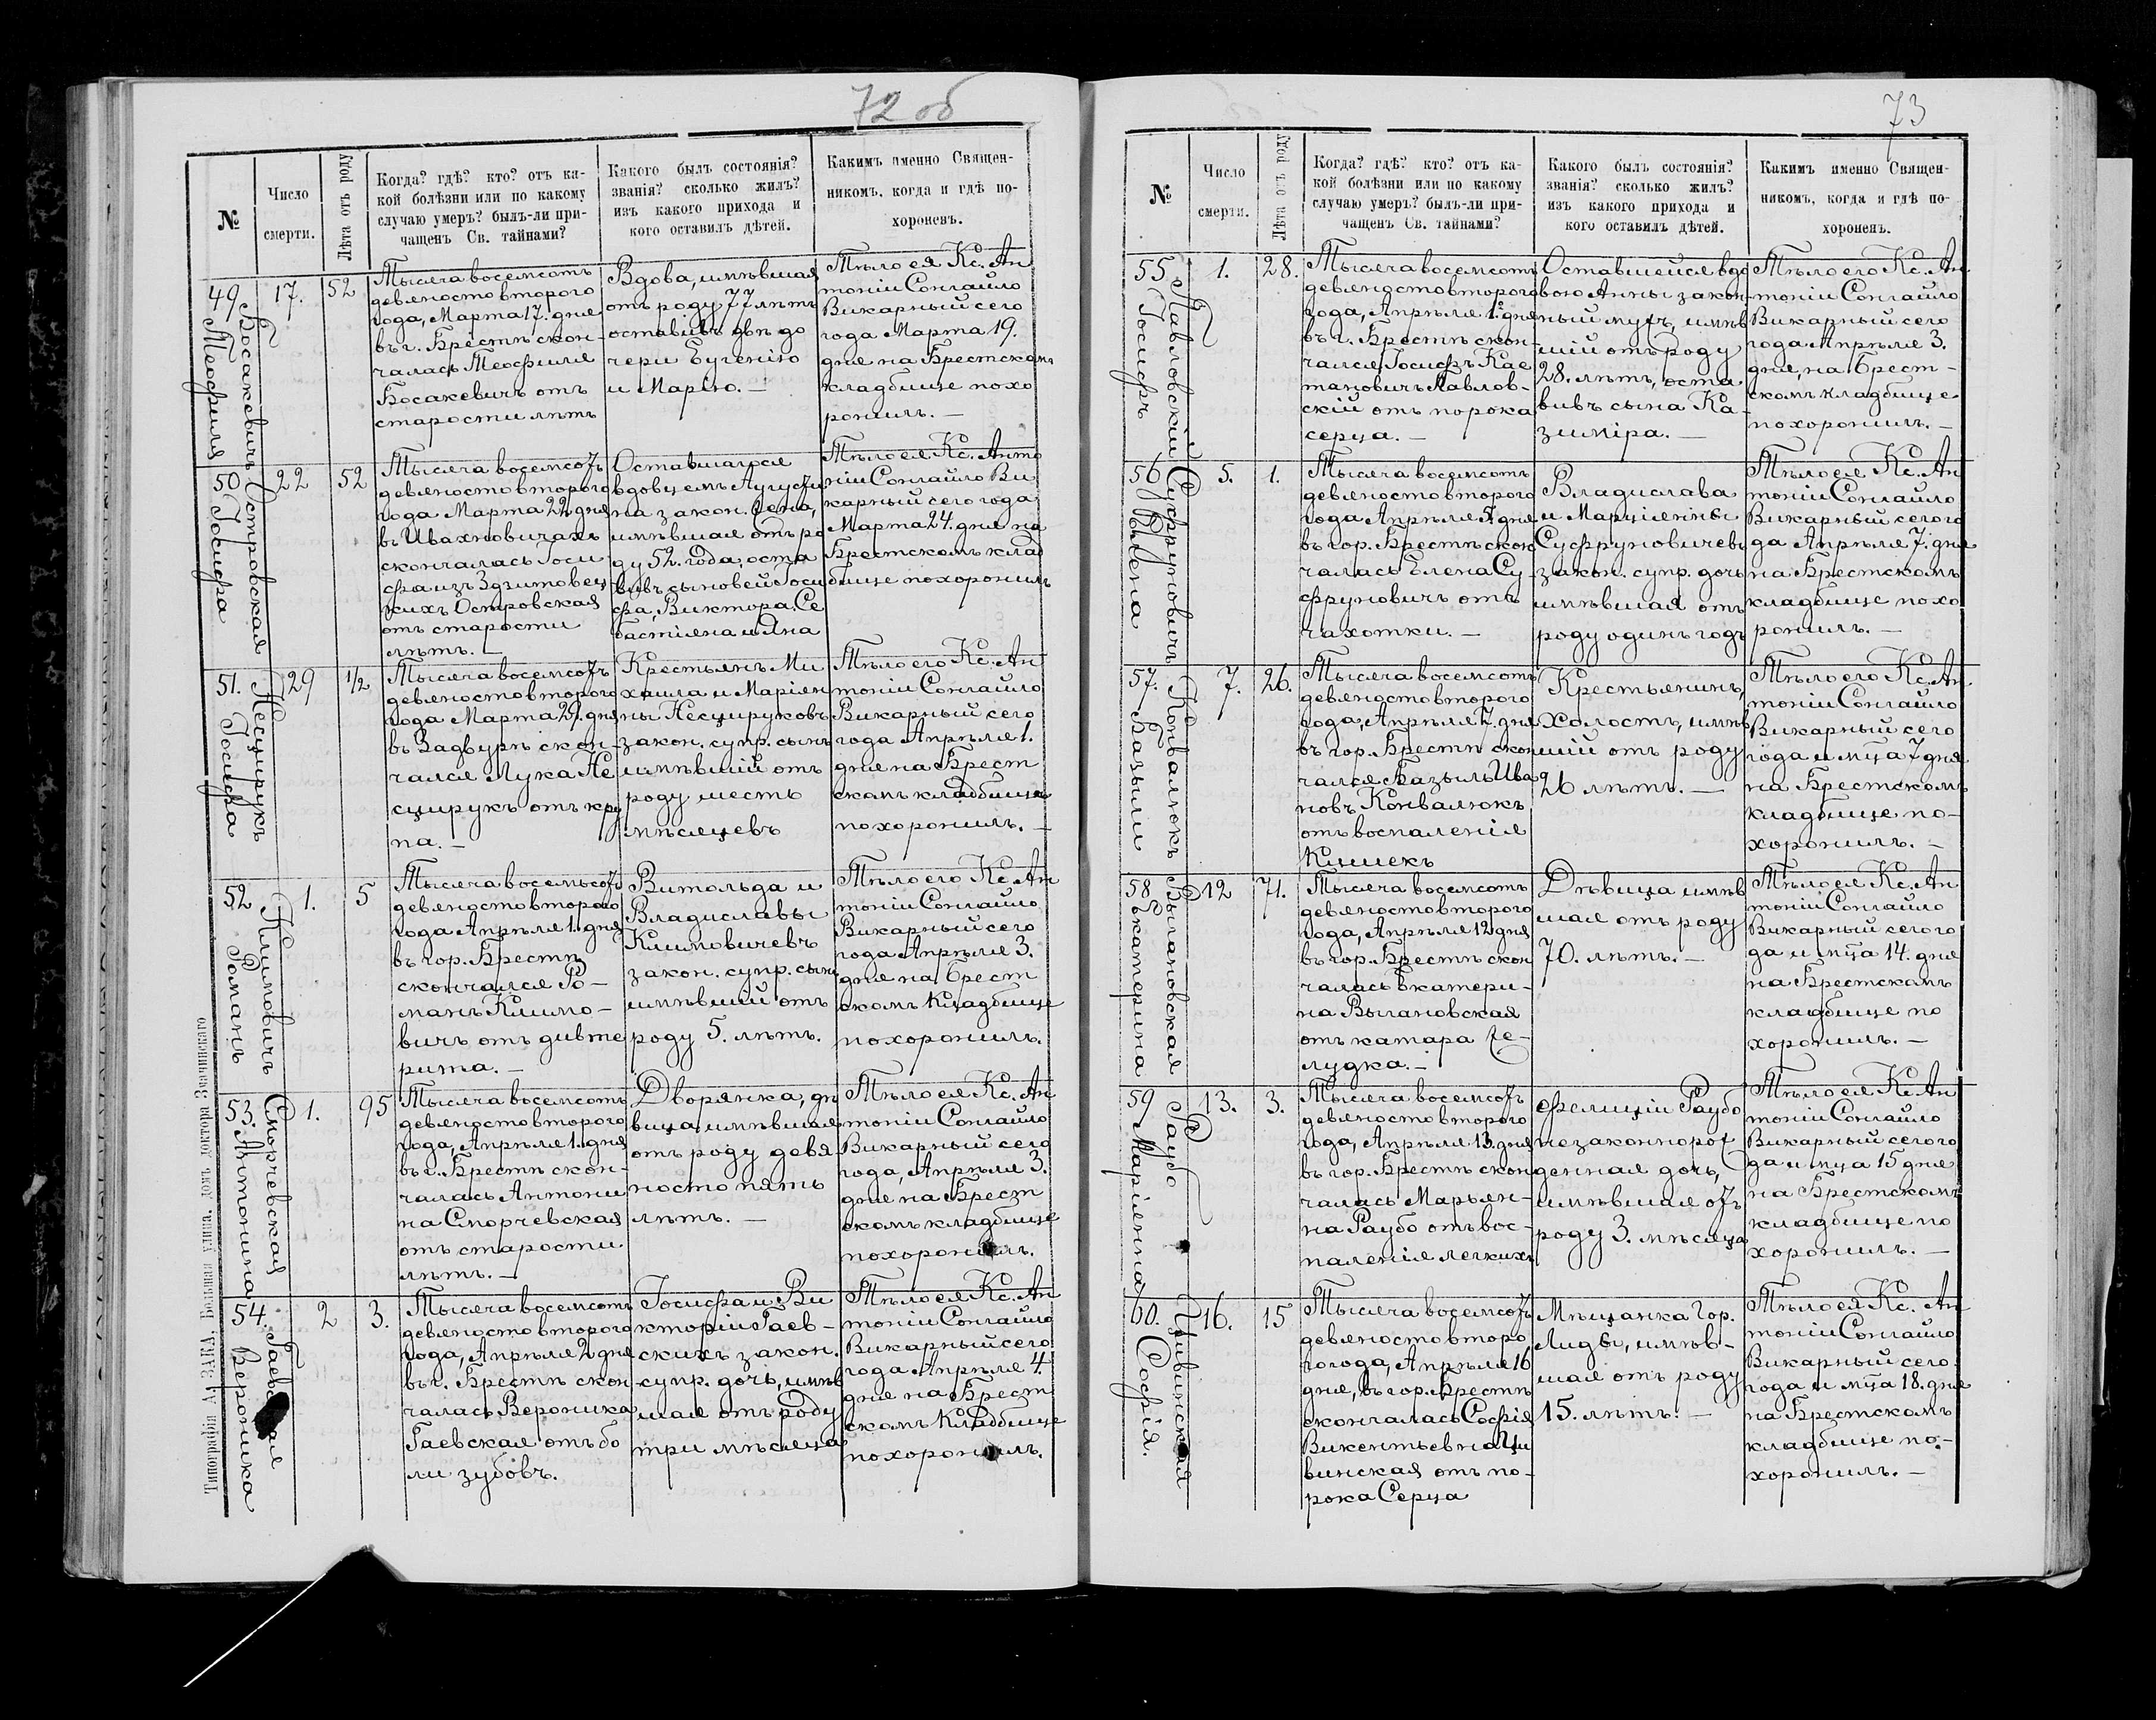 72 об
№
Число
смерти.
Лѣта отъ роду
Когда? гдѣ? кто? отъ ка-
кой болѣзни или по какому
случаю умеръ? былъ-ли при-
чащенъ Св. тайнами?
Какого былъ состоянія?
званія? сколько жилъ?
изъ какого прихода и
кого оставилъ дѣтей.
Какимъ именно Священ-
никомъ, когда и гдѣ по-
хороненъ.
49
Босакевичъ
Теофиля
17.
52
Тысяча восемсотъ
девяносто второго
года, Марта 17. дня
въ г. Брестѣ скон-
чалась Теофиля
Босакевичъ отъ
старости лѣтъ
Вдова, имѣвшая
отъ роду 77 лѣтъ
оставивъ двѣ до
чери Евгенію
и Марію. —
Тѣло ея Кс. Ан
тоній Сонгайло
Викарный сего
года Марта 19.
дня на Брестскомъ
кладбище похо
ронилъ. —
50
Островская
Іосифа
22
52
Тысяча восемсотъ
девяносто второго
года Марта 22 дня
въ Ивахновичахъ
скончалась Іоси
фа изъ Здзитовец
кихъ Островская
отъ старости
лѣтъ. —
Оставшагося
вдовцемъ Августи
на закон. жена,
имѣвшая отъ ро
ду 52. года, оста
вивъ сыновей Іоси
фа, Виктора, Се
бастіяна и Яна
Тѣло ея Кс. Анто
ній Сонгайло Ви
карный сего года
Марта 24. дня на
Брестскомъ клад
бище похоронилъ
51.
Несцирукъ
Іосифа
29
1/2
Тысяча восемсотъ
девяносто второго
года Марта 29. дня
въ Задвурѣ скон-
чался Лука Не
сцирукъ отъ кру
па. —
Крестьянъ Ми
хаила и Маріян
ны Несцируковъ
закон. супр. сынъ
имѣвшій отъ
роду шесть
мѣсяцевъ
Тѣло его Кс. Ан
тоній Сонгайло
Викарный сего
года Апрѣля 1.
дня на Брест
скомъ кладбище
похоронилъ. —
52
Климовичъ
Романъ
1.
5
Тысяча восемьсотъ
девяносто второго
года Апрѣля 1. дня
въ гор. Брестѣ
скончался Ро-
манъ Климо-
вичъ отъ дивте
рита. —
Витольда и
Владиславы
Климовичевъ
закон. супр. сынъ
имѣвшій отъ
роду 5. лѣтъ.
Тѣло его Кс Ан
тоній Сонгайло
Викарный сего
года Апрѣля 3.
дня на Брест
скомъ Кладбище
похоронилъ.
53.
Сморчевская
Антонина
1.
95
Тысяча восемсотъ
девяносто второго
года, Апрѣля 1. дня
въ г. Брестѣ скон-
чалась Антони
на Сморчевская
отъ старости
лѣтъ. —
Дворянка, дѣ
вица имѣвшая
отъ роду девя
носто пять
лѣтъ. —
Тѣло ея Кс. Ан
тоній Сонгайло
Викарный сего
года, Апрѣля 3.
дня на Брест
скомъ кладбище
похоронилъ.
54.
Гаевская
Вероника
2
3.
Тысяча восемсотъ
девяносто второго
года, Апрѣля 2 дня
въ г. Брестѣ скон
чалась Вероника
Гаевская отъ бо
ли зубовъ.
Іосифа и Ви
кторіи Гаев-
скихъ закон.
супр. дочь, имѣв
шая отъ роду
три мѣсяца
Тѣло ея Кс. Ан
тоній Сонгайло
Викарный сего
года Апрѣля 4.
дня на Брест
скомъ Кладбище
похоронилъ.
Типографія А. ЗАКА, Большая улица, домъ доктора Значинскаго
73
№
Число
смерти.
Лѣта отъ роду
Когда? гдѣ? кто? отъ ка-
кой болѣзни или по какому
случаю умеръ? былъ-ли при-
чащенъ Св. тайнами?
Какого былъ состоянія?
званія? сколько жилъ?
изъ какого прихода и
кого оставилъ дѣтей.
Какимъ именно Священ-
никомъ, когда и гдѣ по-
хороненъ.
55
Павловскій
Іосифъ
1.
28.
Тысяча восемсотъ
девяносто второго
года, Апрѣля 1. дня
въ г. Брестѣ скон-
чался Іосифъ Кае
тановичъ Павлов-
скій отъ порока
серца. —
Оставшейся вдо
вою Анны закон-
ный мужъ, имѣв
шій отъ роду
28. лѣтъ, оста
вивъ сына Ка-
зиміра. —
Тѣло его Кс. Ан
тоній Сонгайло
Викарный сего
года Апрѣля 3.
дня, на Брест-
скомъ кладбище
похоронилъ. —
56
Суфруновичъ
Елена
5.
1.
Тысяча восемсотъ
девяносто второго
года Апрѣля 5. дня
въ гор. Брестѣ скон
чалась Елена Су-
фруновичъ отъ
чахотки. —
Владислава
и Марціянны
Суфруновичевъ
закон. супр. дочь
имѣвшая отъ
роду одинъ годъ
Тѣло ея Кс. Ан
тоній Сонгайло
Викарный сего го
да Апрѣля 7. дня
на Брестскомъ
кладбище похо
ронилъ. —
57.
Конвалюкъ
Базылій
7.
26.
Тысяча восемсотъ
девяносто второго
года, Апрѣля 7. дня
въ гор. Брестѣ скон
чался Базыль Ива
новъ Конвалюкъ
отъ воспаленія
Кишекъ
Крестьянинъ,
холостъ, имѣв
шій отъ роду
26 лѣтъ. —
Тѣло его Кс. Ан
тоній Сонгайло
Викарный сего
года и мца 7 дня
на Брестскомъ
кладбище по-
хоронилъ. —
58
Выгановская
Екатерина
12
71.
Тысяча восемсотъ
девяносто второго
года, Апрѣля 12 дня
въ гор. Брестѣ скон
чалась Екатери-
на Выгановская
отъ катара же-
лудка. —
Дѣвица имѣв
шая отъ роду
70. лѣтъ. —
Тѣло ея Кс. Ан
тоній Сонгайло
Викарный сего го
да и мца 14. дня
на Брестскомъ
кладбище по
хоронилъ. —
59
Раубо
Маріянна
13.
3.
Тысяча восемсотъ
девяносто второго
года, Апрѣля 13. дня
въ гор. Брестѣ скон
чалась Марьян-
на Раубо отъ вос-
паленія легкихъ
Фелиціи Раубо
незаконнорож
денная дочь,
имѣвшая отъ
роду 3. мѣсяца
Тѣло ея Кс. Ан
тоній Сонгайло
Викарный сего го
да и мца 15 дня
на Брестскомъ
кладбище по
хоронилъ. —
60.
Цивинская
Софія.
16.
15
Тысяча восемсотъ
девяносто второ
го года, Апрѣля 16
дня, въ гор. Брестѣ
скончалась Софія
Викентьевна Ци
винская отъ по-
рока Серца
Мѣщанка Гор.
Лиды, имѣв-
шая отъ роду
15. лѣтъ. —
Тѣло ея Кс. Ан
тоній Сонгайло
Викарный сего
года и мца 18. дня
на Брестскомъ
кладбище по-
хоронилъ. —